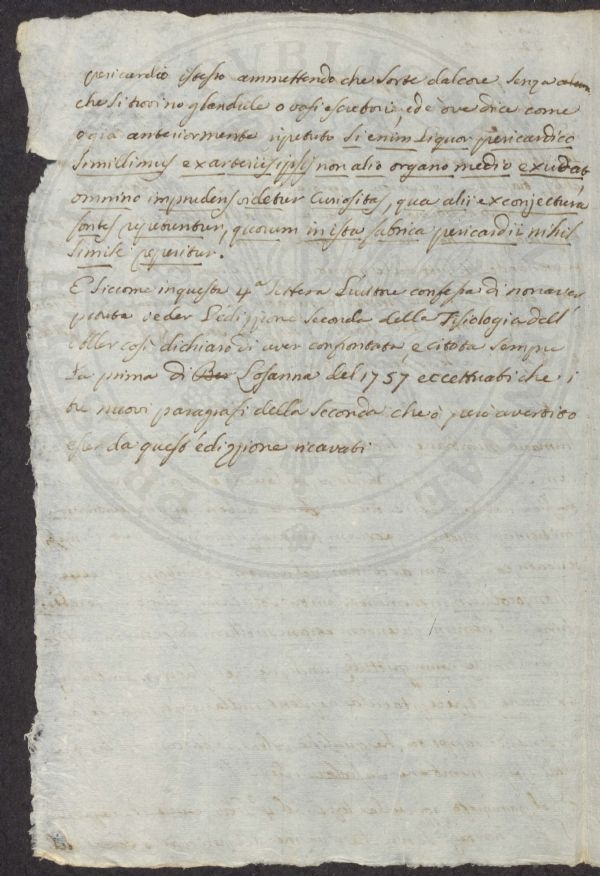 pericardio istesso ammettendo che sorte dal core senza alcun
che si trovino glandule o vasi escretori, ed è ove dice come
ogià anteriormente riputato si enim Liquor pericardico
simillimus ex arteriis ipsis non alio organo medio exudat
omnino imprudens videtur Curiositas, qua alii ex conjectura
fontes reperuntur, quorum in ista fabrica pericardii nihil
simile reperitur.
E siccome in questa 4ª Lettera L'autore confessa di non aver
potuto veder L'edizzione seconda della Fisiologia dell'
Haller così dichiaro di aver confrontata, e citata sempre
La prima di Ber Losanna del 1757 eccettuati che i
tre nuovi paragrafi della seconda che ò però avertito
esser da quest'edizzione ricavati
PVBLIC